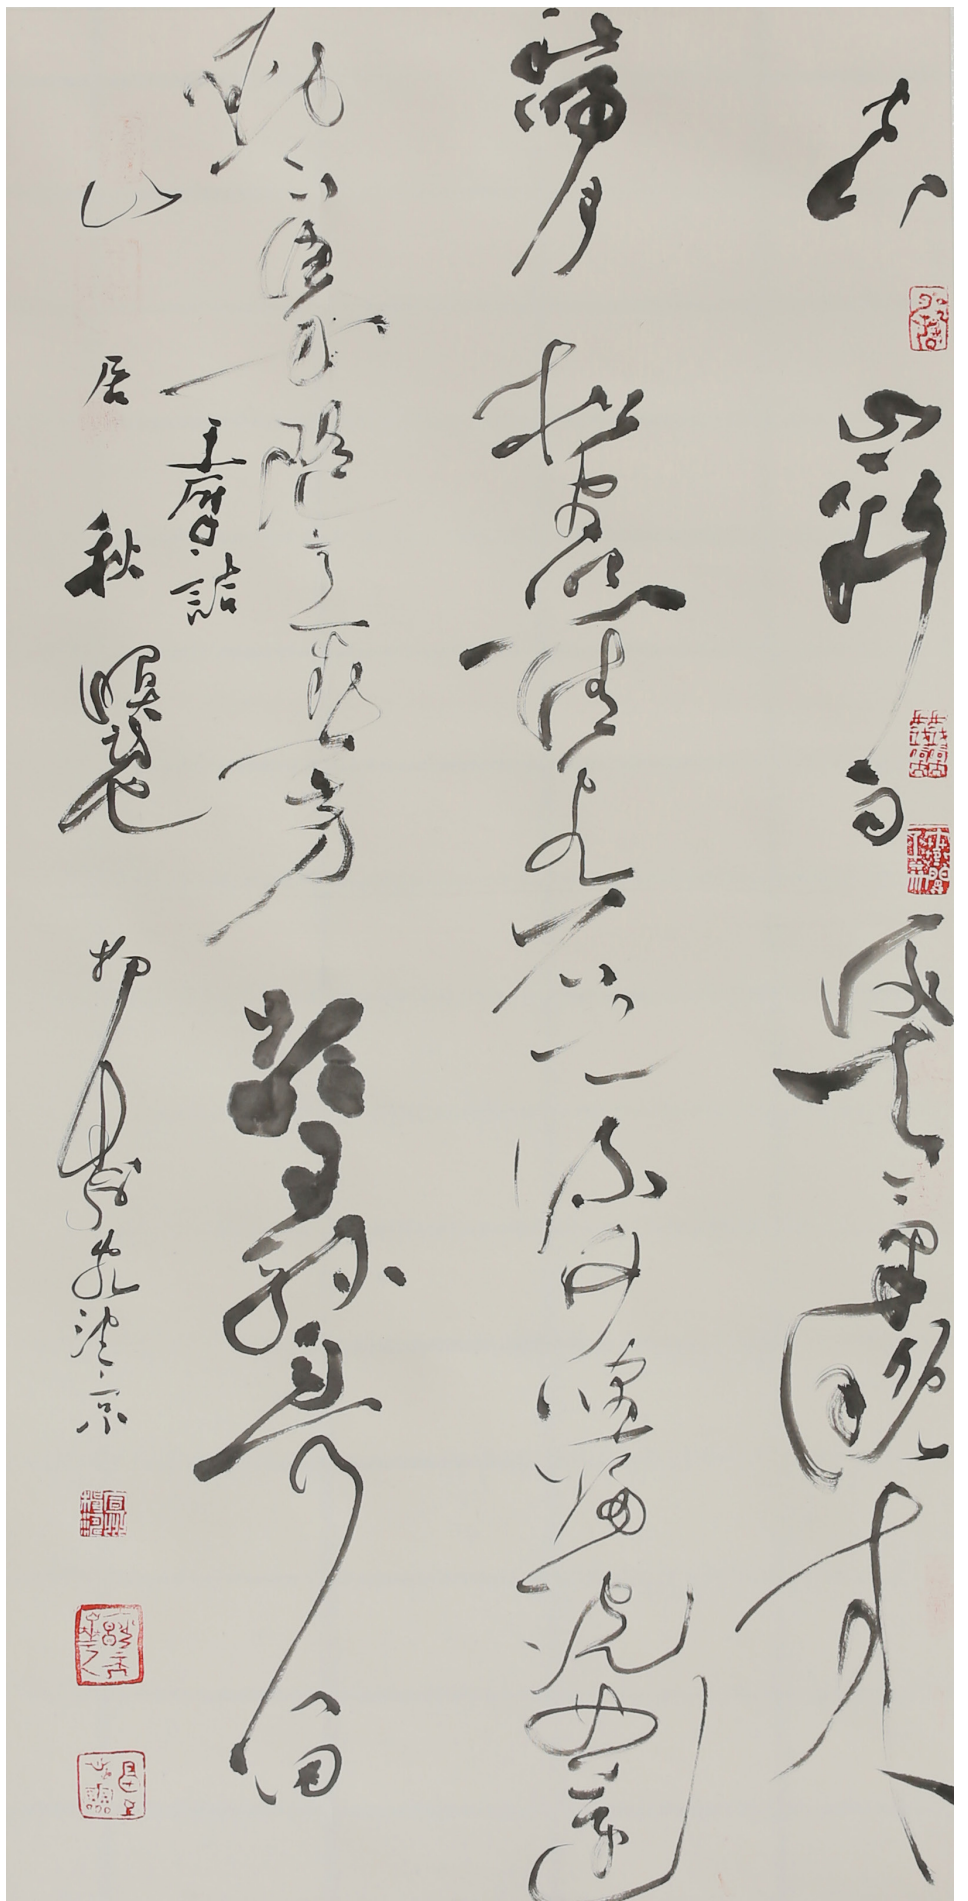 空山新雨後天氣晚來秋
明月松間照清泉石上流竹喧歸浣女蓮
動下漁舟隨意春芳歇王孫自可留
王摩詰
山居秋暝